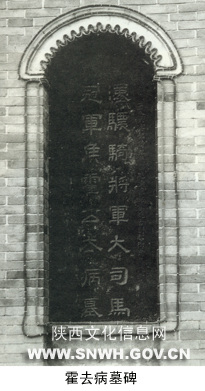 漢驃騎將軍大司馬
冠軍侯霍公去病墓
陕西文化信息网
WWW.SNWH.GOV.CN
霍去病墓碑